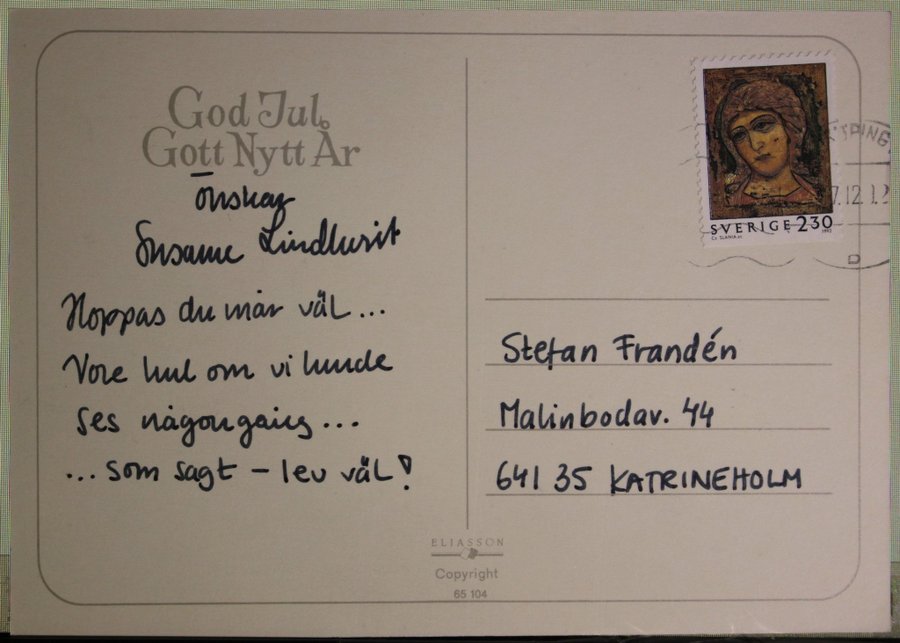 God Jul,
Gott Nytt År
önskar
Susanne Lindkvist
Hoppas du mår väl...
Vore kul om vi kunde
ses någongång...
...som sagt – lev väl!
SVERIGE 230
Stefan Frandén
Malinbodav. 44
641 35 KATRINEHOLM
ELIASSON
Copyright
65 104